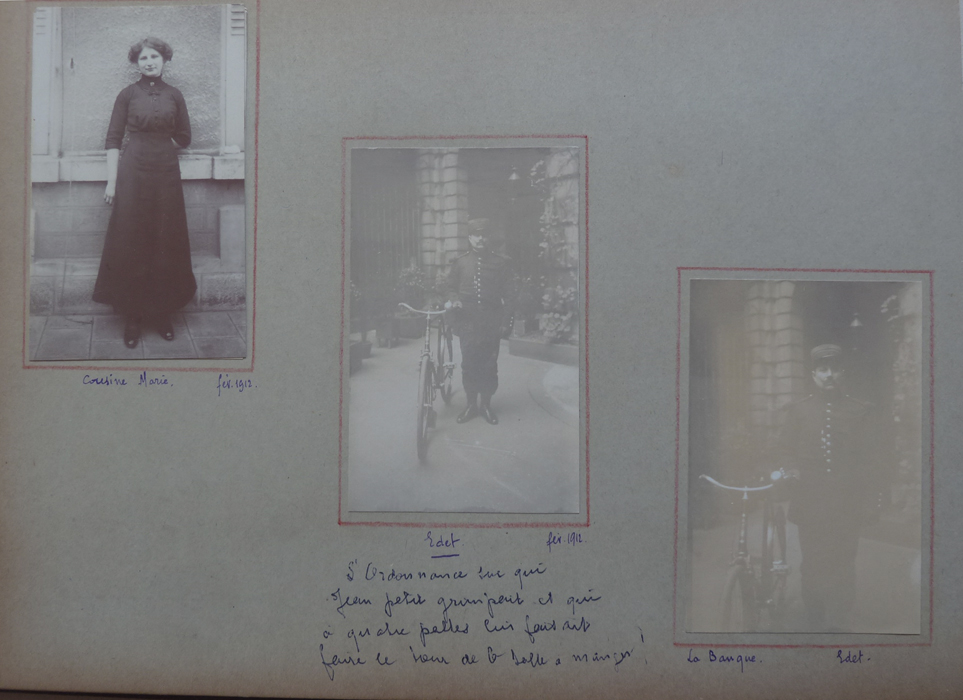 Cousine Marie. fév. 1912.
Edet. fév. 1912
L'Ordonnance sur qui
Jean petit grimpait et qui
à quatre pattes lui faisait
faire le tour de la salle à manger!
La Banque. Edet.